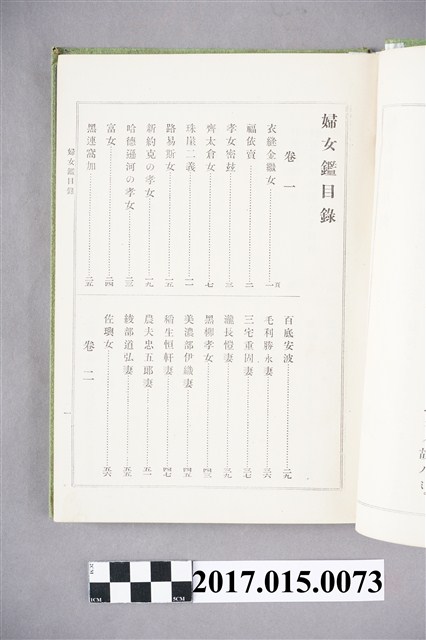 婦女鑑目錄
卷一
衣縫金繼女……一頁
福依賣……二
孝女密玆……三
齊太倉女……七
珠崖二義……一一
路易斯女……一五
新約克の孝女……一九
哈德遜河の孝女……二三
富女……二四
黑連窩加……二五
百底安波……二九
毛利勝永妻……三六
三宅重固妻……三七
瀧長愷妻……三九
黑柳孝女……四三
美濃部伊織妻……四五
稻生恒軒妻……四七
農夫忠五郎妻……五一
綾部道弘妻……五五
佐璵女……五六
卷二
婦女鑑目錄
一
2CM
1CM
5CM
2017.015.0073